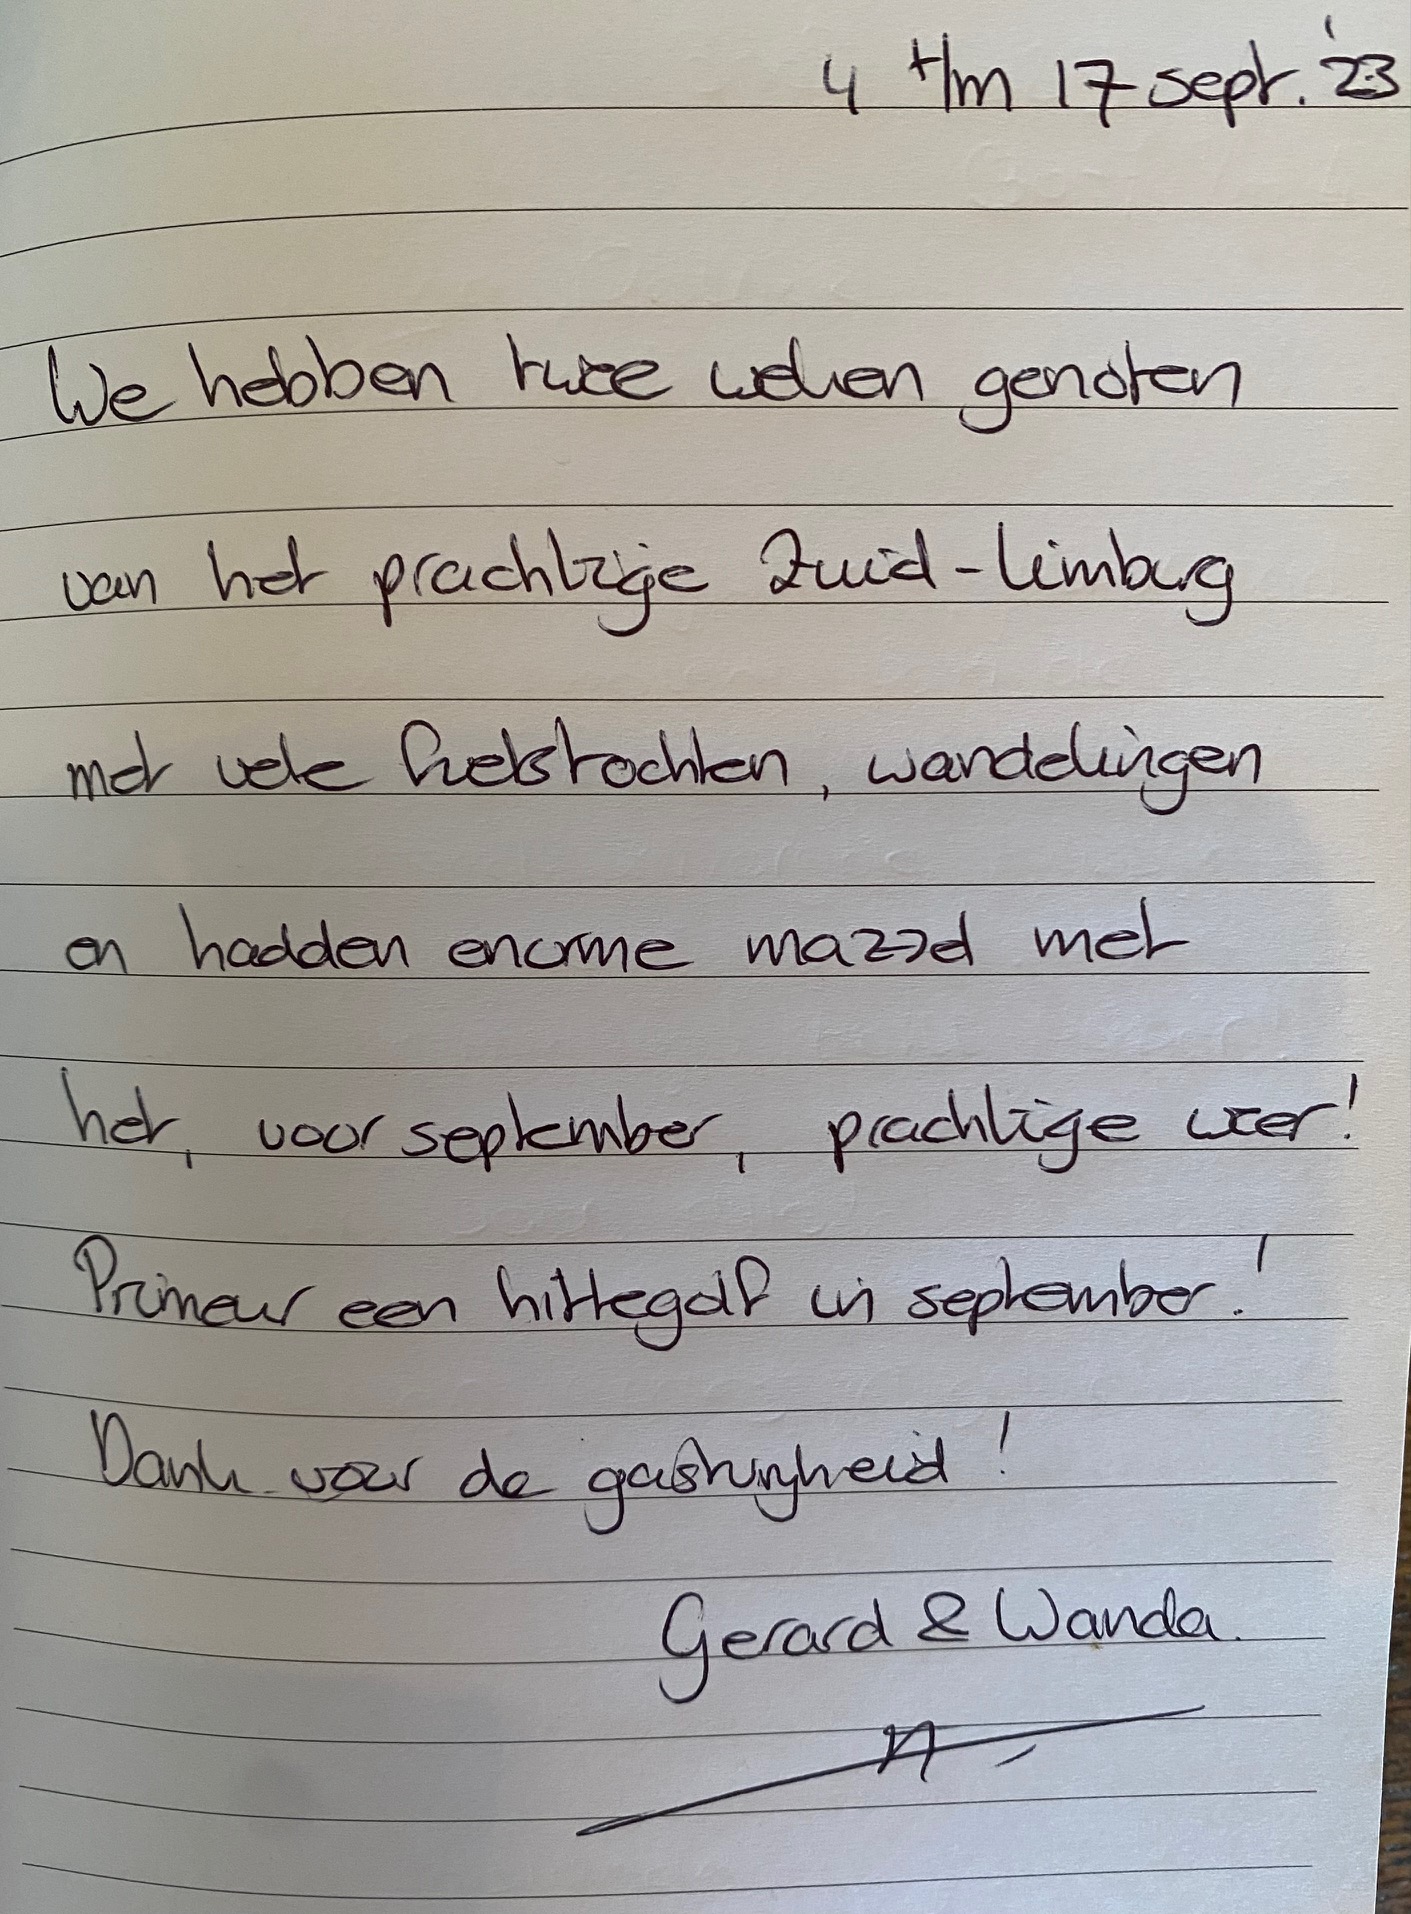 4 t/m 17 sept. '23
We hebben twee weken genoten
van het prachtige Zuid-Limburg
met vele fietstochten, wandelingen
en hadden enorme mazzel met
het, voor september, prachtige weer!
Primeur een hittegolf in september!
Dank voor de gastvrijheid!
Gerard & Wanda.